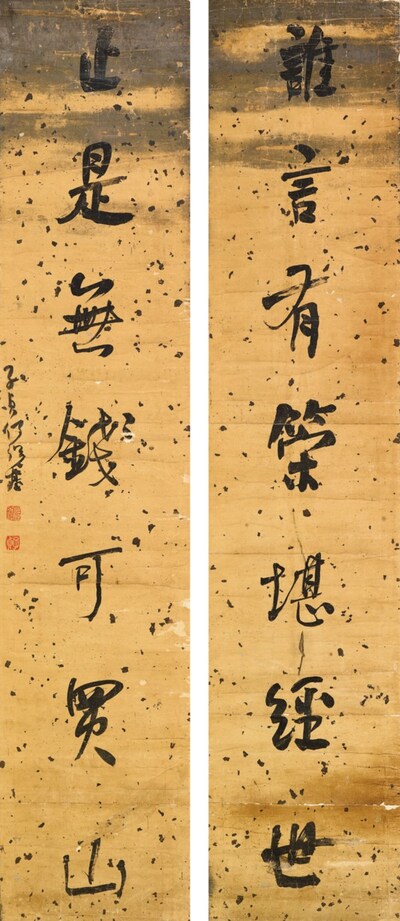 誰言有策堪經世
止是無錢可買山
子貞何紹基